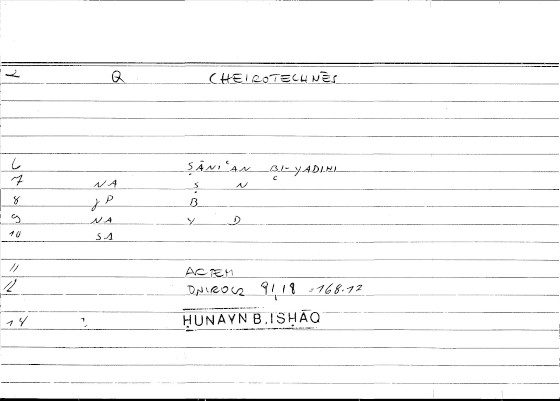 2 Q CHEIROTECHNĒS
6 ṢĀNIʿAN BI-YADIHI
7 NA Ṣ N ʿ
8 gP B
9 NA Y D
10 SA
11 ARTEM
12 ONIROCR 91,18 = 168.12
14 ? ḤUNAYN B. ISḤĀQ